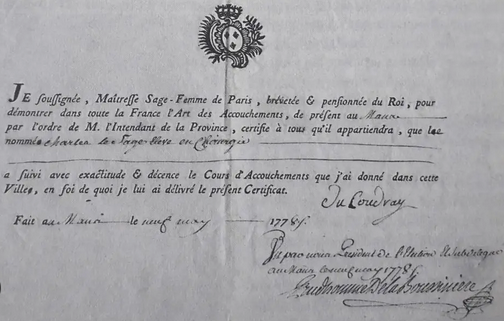 JE soussignée, Maîtresse Sage-Femme de Paris, brévetée & pensionnée du Roi, pour
démontrer dans toute la France l'Art des Accouchements, de présent au Mans
par l'ordre de M. l'Intendant de la Province, certifie à tous qu'il appartiendra, que le
nommé Charles le Sage élève en Chirurgie
a suivi avec exactitude & décence le Cours d'Accouchements que j'ai donné dans cette
Villes, en foi de quoi je lui ai délivré le présent Certificat.
Du Coudray
Fait au Mans le neuf may 1778
Vu par nous President de l'Election
au Mans le neuf may 1778
Prudhomme De la Boussiniere